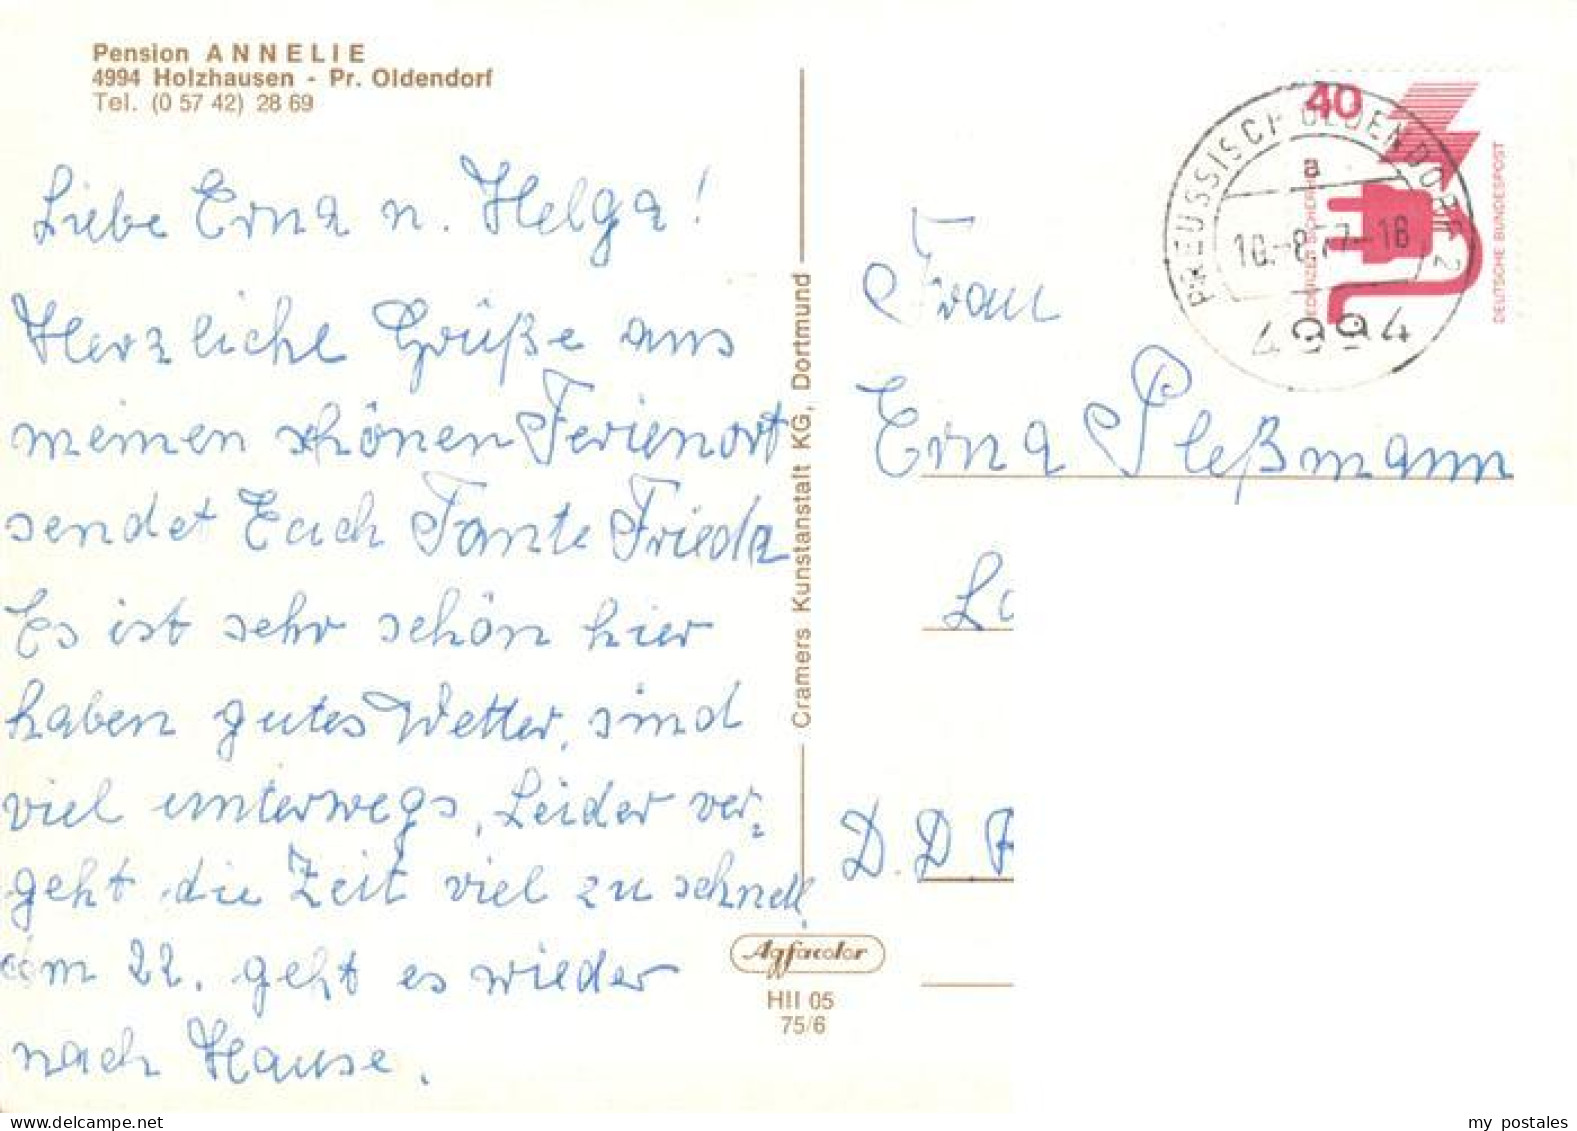 Pension ANNELIE
4994 Holzhausen - Pr. Oldendorf
Tel. (0 57 42) 28 69
Liebe Erna u. Helga!
Herzliche Grüße aus
meinen schönen Ferienort
sendet Euch Tante Frieda
Es ist sehr schön hier
haben gutes Wetter, sind
viel unterwegs, Leider ver-
geht die Zeit viel zu schnell,
am 22. geht es wieder
nach Hause.
Cramers Kunstanstalt KG, Dortmund
Agfacolor
HII 05
75/6
40
DEUTSCHE BUNDESPOST
JEDERZEIT SICHERHEIT
PREUSSISCH OLDENDORF 2
a
10.-8.77-18
4994
Frau
Erna Pleßmann
D.D.R
my postales